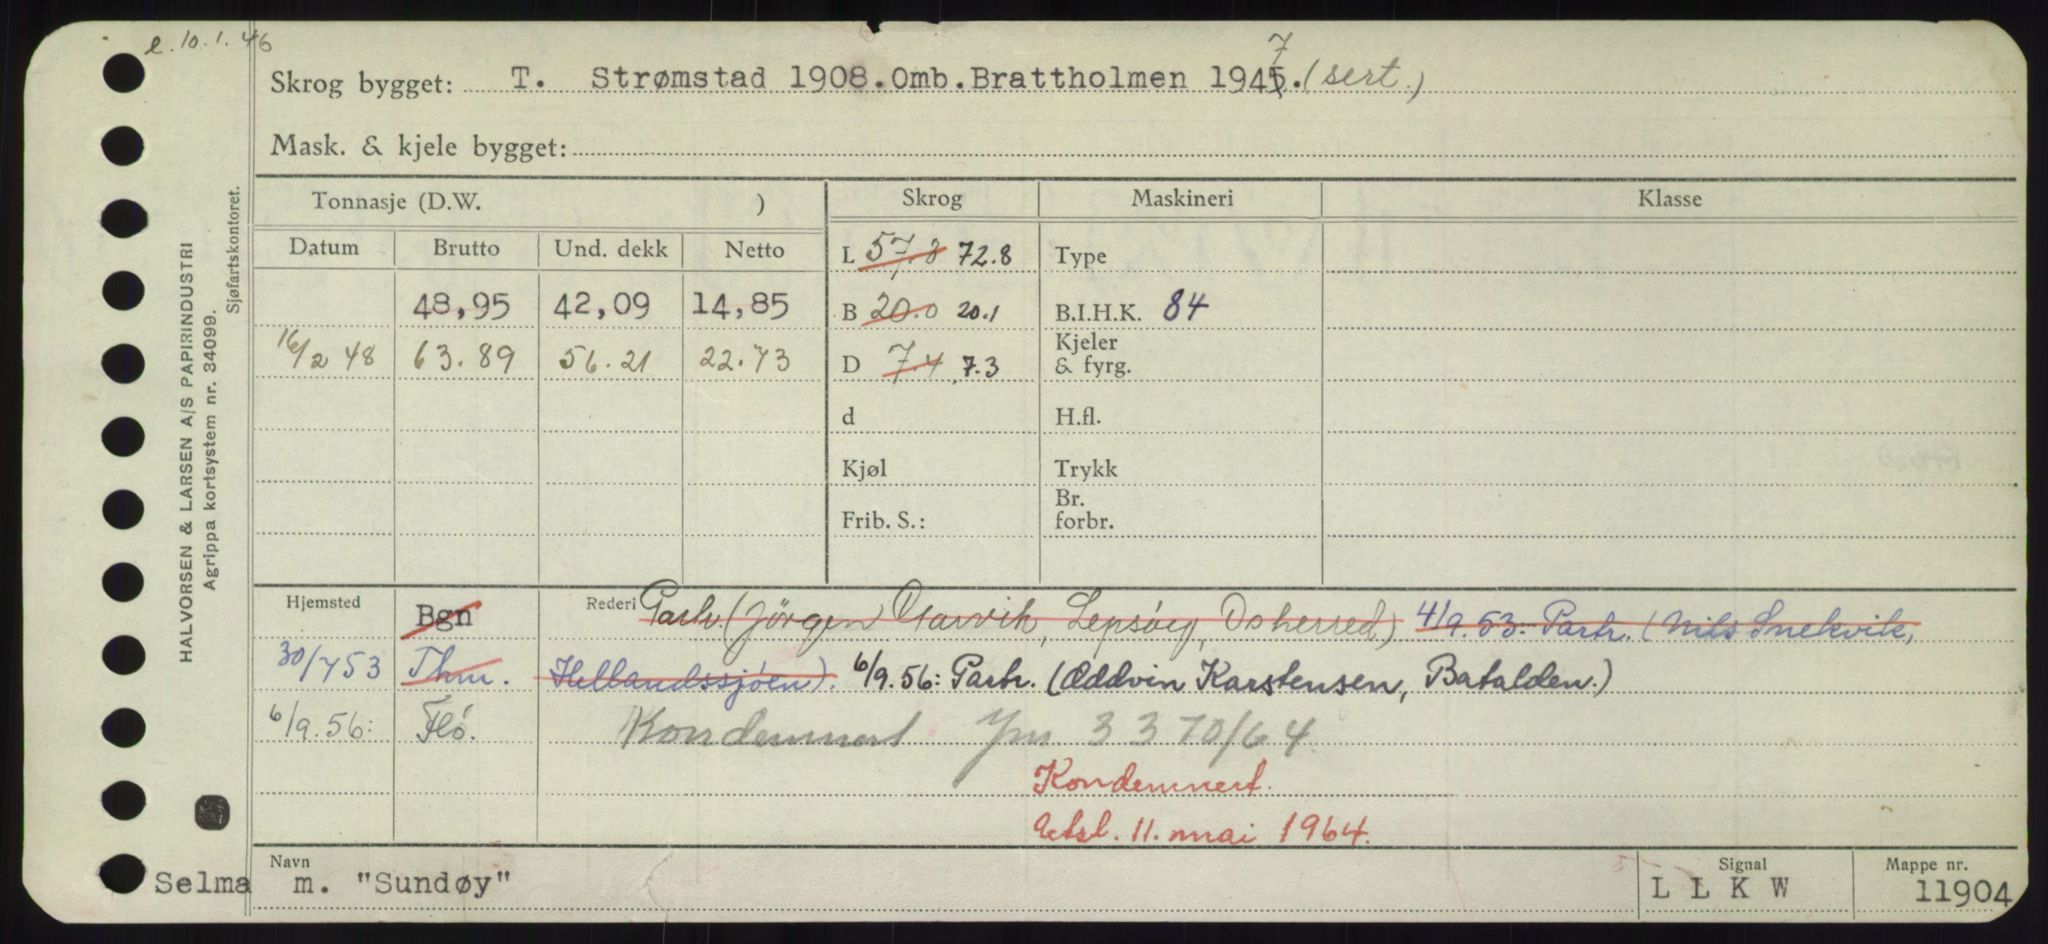 e. 10.1.46
Skrog bygget: T. Strømstad 1908. Omb. Brattholmen 1945. 7 (sert.)
Mask. & kjele bygget:
Tonnasje (D.W. ) Skrog Maskineri Klasse
Datum Brutto Und. dekk Netto L 57.8 72.8 Type
48,95 42,09 14,85 B 20.0 20.1 B.I.H.K. 84
16/2 48 63.89 56.21 22.73 D 7.4 7.3 Kjeler & fyrg.
d H.fl.
Kjøl Trykk
Frib. S.: Br. forbr.
Hjemsted Bgn Rederi Partr. (Jörgen Osarvik, Lepsöy, Osherred) 4/9.53: Partr. (Nils Snekvik,
30/7 53 Thm. Hellandssjöen). 6/9.56: Partr. (Oddvin Karstensen, Batalden.)
6/9.56: Flö. Kondemnert Jnr. 3370/64.
Kondemnert.
Utsl. 11. mai 1964.
Navn Signal Mappe nr.
Selma m. "Sundøy" L L K W 11904
HALVORSEN & LARSEN A/S PAPIRINDUSTRI
Agrippa kortsystem nr. 34099.
Sjøfartskontoret.